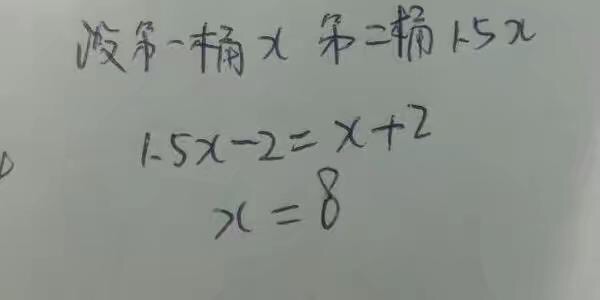 设第一桶x 第二桶1.5x
1.5x-2=x+2
x=8